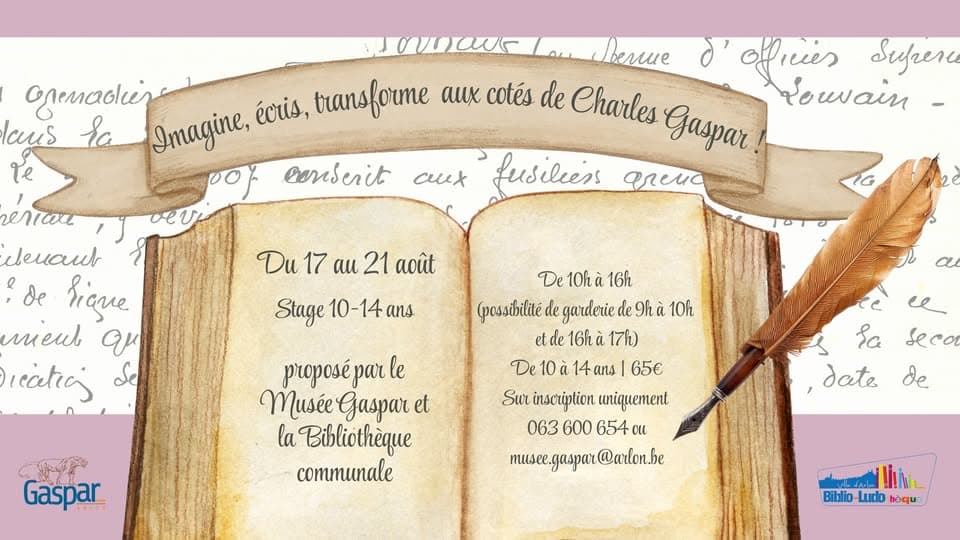 Imagine, écris, transforme aux cotés de Charles Gaspar !
Du 17 au 21 août
Stage 10-14 ans
proposé par le
Musée Gaspar et
la Bibliothèque
communale
De 10h à 16h
(possibilité de garderie de 9h à 10h
et de 16h à 17h)
De 10 à 14 ans | 65€
Sur inscription uniquement
063 600 654 ou
musee.gaspar@arlon.be
d'officiers
grenadiers
Louvain -
dans la
Le
conscrit aux fusiliers
de ligne
la
date de
Gaspar
Ville d'Arlon
Biblio-Ludo
hèque